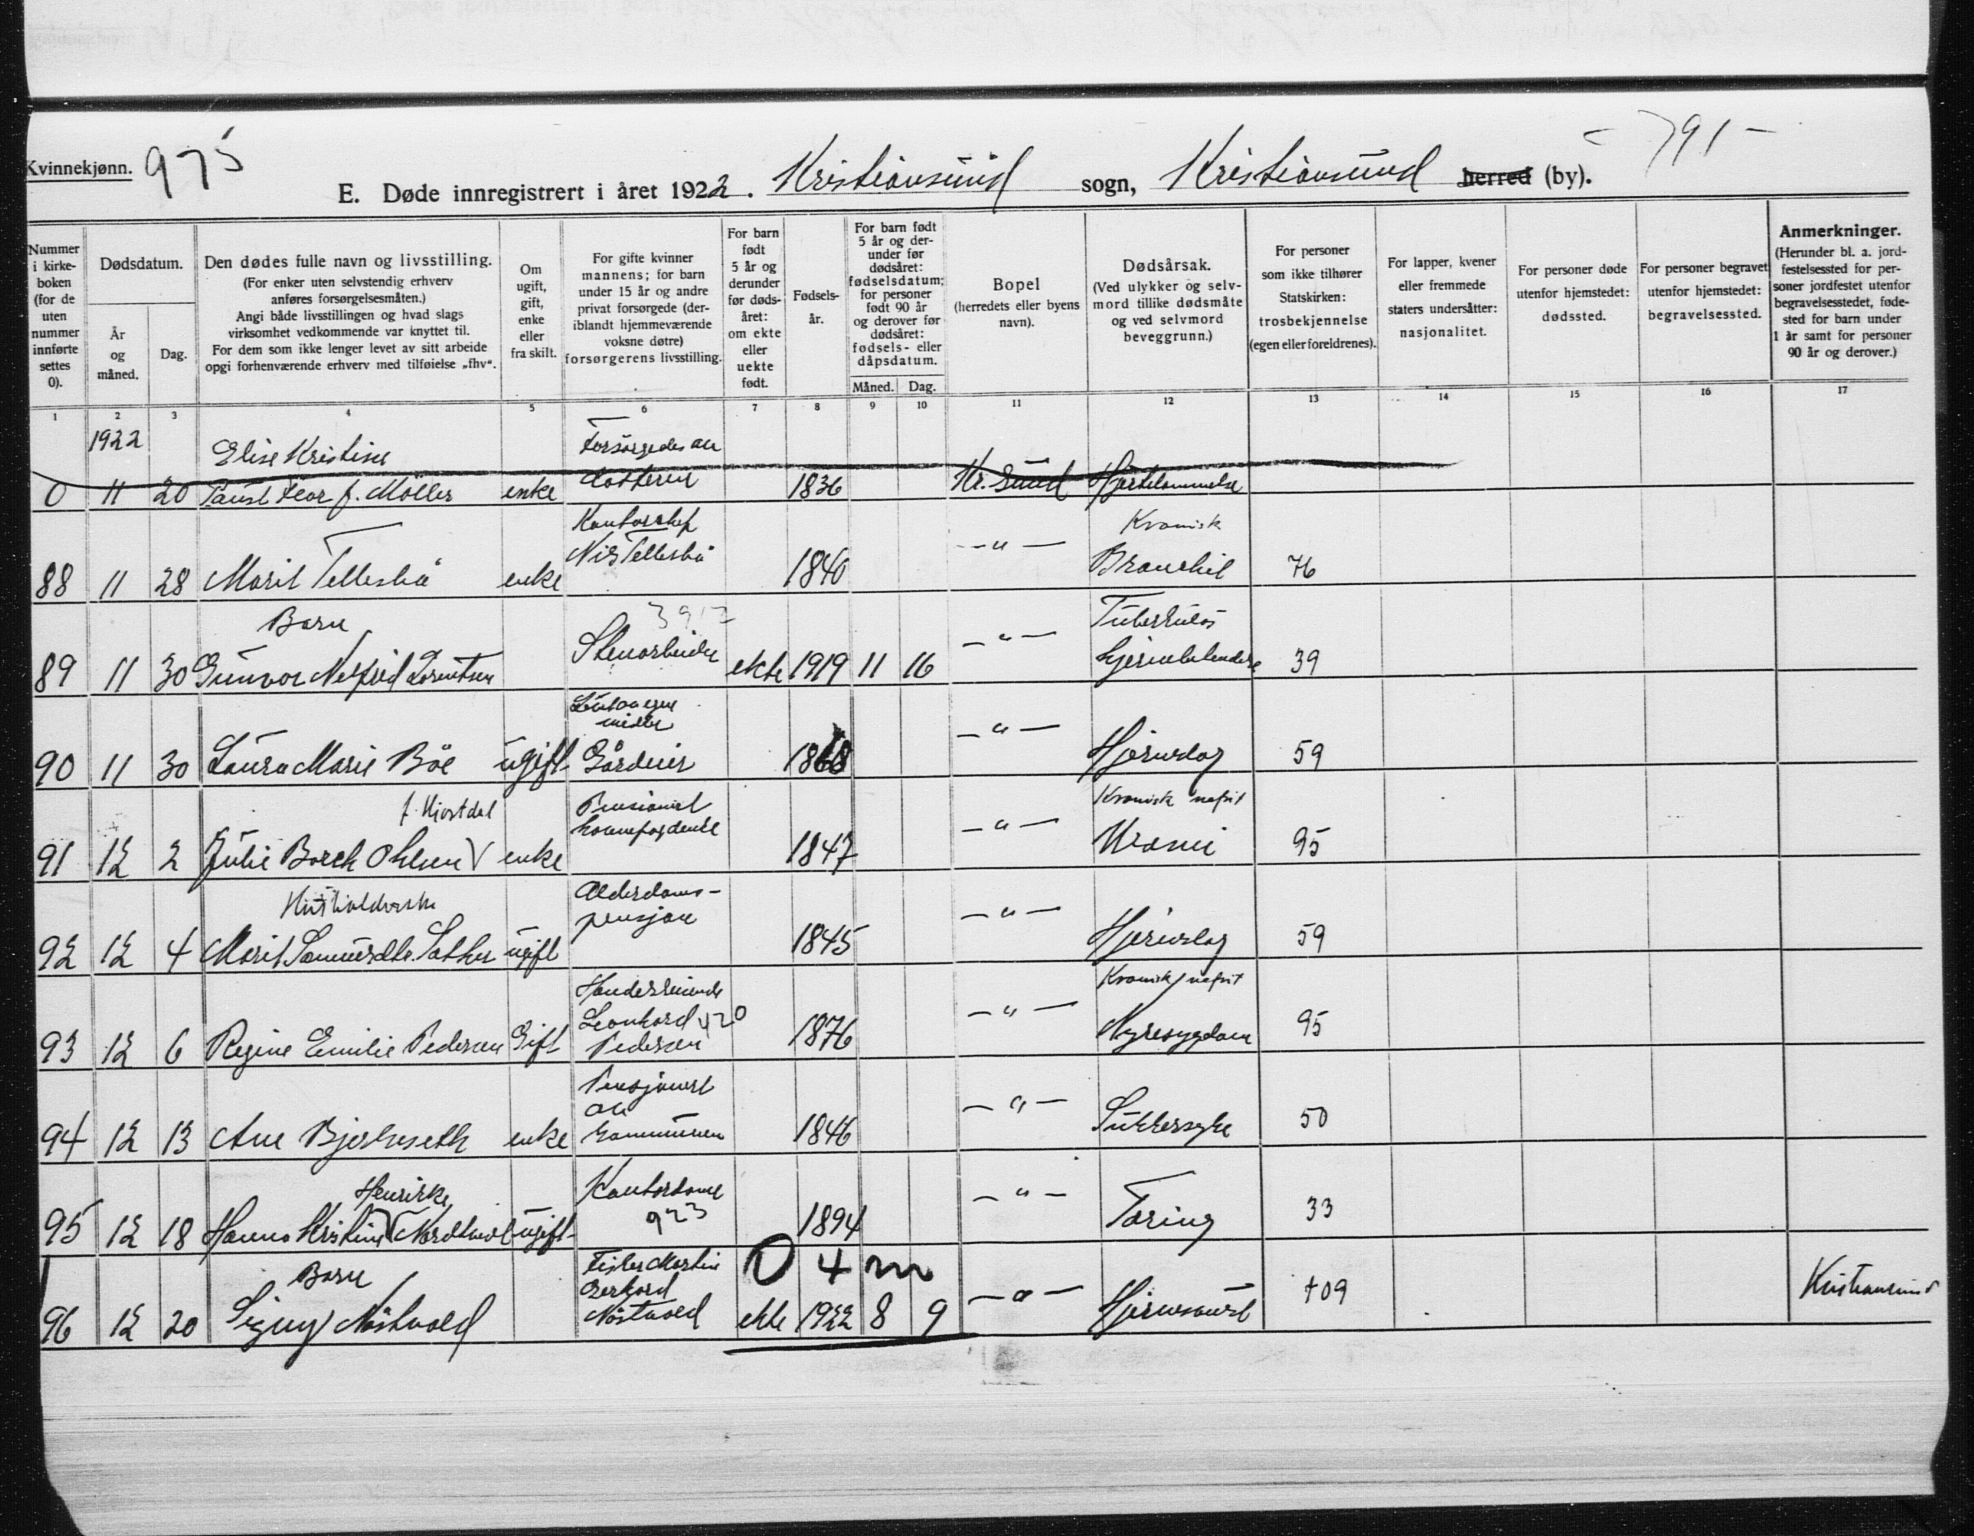 Kvinnekjønn. 975
791
E. Døde innregistrert i året 1922. Kristiansund sogn, Kristiansund herred (by).
Nummer i kirkeboken (for de uten nummer innførte settes 0).
Dødsdatum.
År og måned.
Dag.
Den dødes fulle navn og livsstilling.
(For enker uten selvstendig erhverv anføres forsørgelsesmåten.)
Angi både livsstillingen og hvad slags virksomhet vedkommende var knyttet til.
For dem som ikke lenger levet av sitt arbeide opgi forhenværende erhverv med tilføielse „fhv“.
Om ugift, gift, enke eller fraskilt.
For gifte kvinner mannens; for barn under 15 år og andre privat forsørgede (deriblandt hjemmeværende voksne døtre) forsørgerens livsstilling.
For barn født 5 år og derunder før dødsåret: om ekte eller uekte født.
Fødselsår.
For barn født 5 år og derunder før dødsåret: fødselsdatum; for personer født 90 år og derover før dødsåret: fødsels- eller dåpsdatum.
Måned. Dag.
Bopel
(herredets eller byens navn).
Dødsårsak.
(Ved ulykker og selvmord tillike dødsmåte og ved selvmord beveggrunn.)
For personer som ikke tilhører Statskirken: trosbekjennelse (egen eller foreldrenes).
For lapper, kvener eller fremmede staters undersåtter: nasjonalitet.
For personer døde utenfor hjemstedet: dødssted.
For personer begravet utenfor hjemstedet: begravelsessted.
Anmerkninger.
(Herunder bl. a. jordfestelsessted for personer jordfestet utenfor begravelsesstedet, fødested for barn under 1 år samt for personer 90 år og derover.)
1 2 3 4 5 6 7 8 9 10 11 12 13 14 15 16 17
1922 Elise Kristine Forsørgedes av
0 11 20 f. Möller enke datteren 1836 Kr.sund Hjertelammelse
Kontorchef Kronisk
88 11 28 Marit Tellesbö enke Nils Tellesbö 1840 -"- Bronchit 76
Barn 3917 Tuberkuløs
89 11 30 Gunvor Lorentsen Stenarbeider ekte 1919 11 16 -"- hjernebetendelse 39
90 11 30 Laura Marie Böe ugift Gårdeier 1868 -"- Hjerneslag 59
f. Hjortdal Pensionist Kronisk nefrit
91 12 2 Julie Borch Ohlsen enke 1847 -"- Uræmi 95
Husholderske Alderdoms-
92 12 4 Marit Sæther ugift pensjon 1845 -"- Hjerneslag 59
Handelsreisende Kronisk nefrit
93 12 6 Regine Emilie Pedersen Gift Leonhard Pedersen 420 1876 -"- Nyresygdom 95
Pensjonist
av
94 12 13 Ane Bjerkeseth enke kommunen 1846 -"- Sukkersyke 50
Henrikke Kontordame
95 12 18 Hanna Kristine Nordtvedt ugift 923 1894 -"- Tæring 33
Barn Fisker Martin 0 4 m
96 12 20 Signy Nöstvold Gerhard Nöstvold ekte 1922 8 9 -"- Hjernevæske 109 Kristiansund